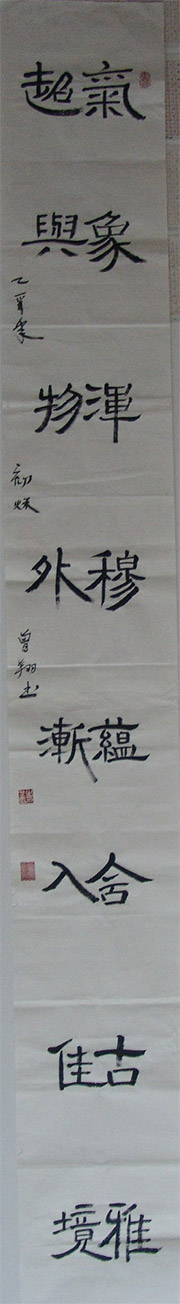 氣象渾穆蘊含古雅
超與物外漸入佳境
初秋
曾翔书